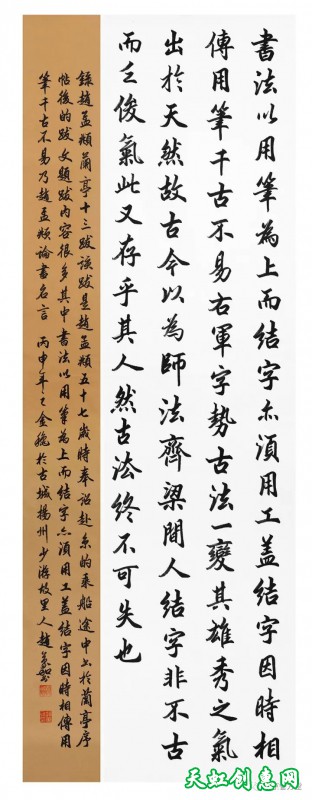 書法以用筆為上而結字亦須用工蓋結字因時相
傳用筆千古不易右軍字勢古法一變其雄秀之氣
出於天然故古今以為師法齊梁間人結字非不古
而乏俊氣此又存乎其人然古法終不可失也
錄趙孟頫蘭亭十三跋該跋是趙孟頫五十七歲時奉詔赴京的乘船途中上於蘭亭序
帖後的跋文題跋内容很多其中書法以用筆為上而結字亦須用工蓋結字因時相傳用
筆千古不易乃趙孟頫論書名言 丙申年之金秋於古城揚州少游故里人趙
天虹创惠网